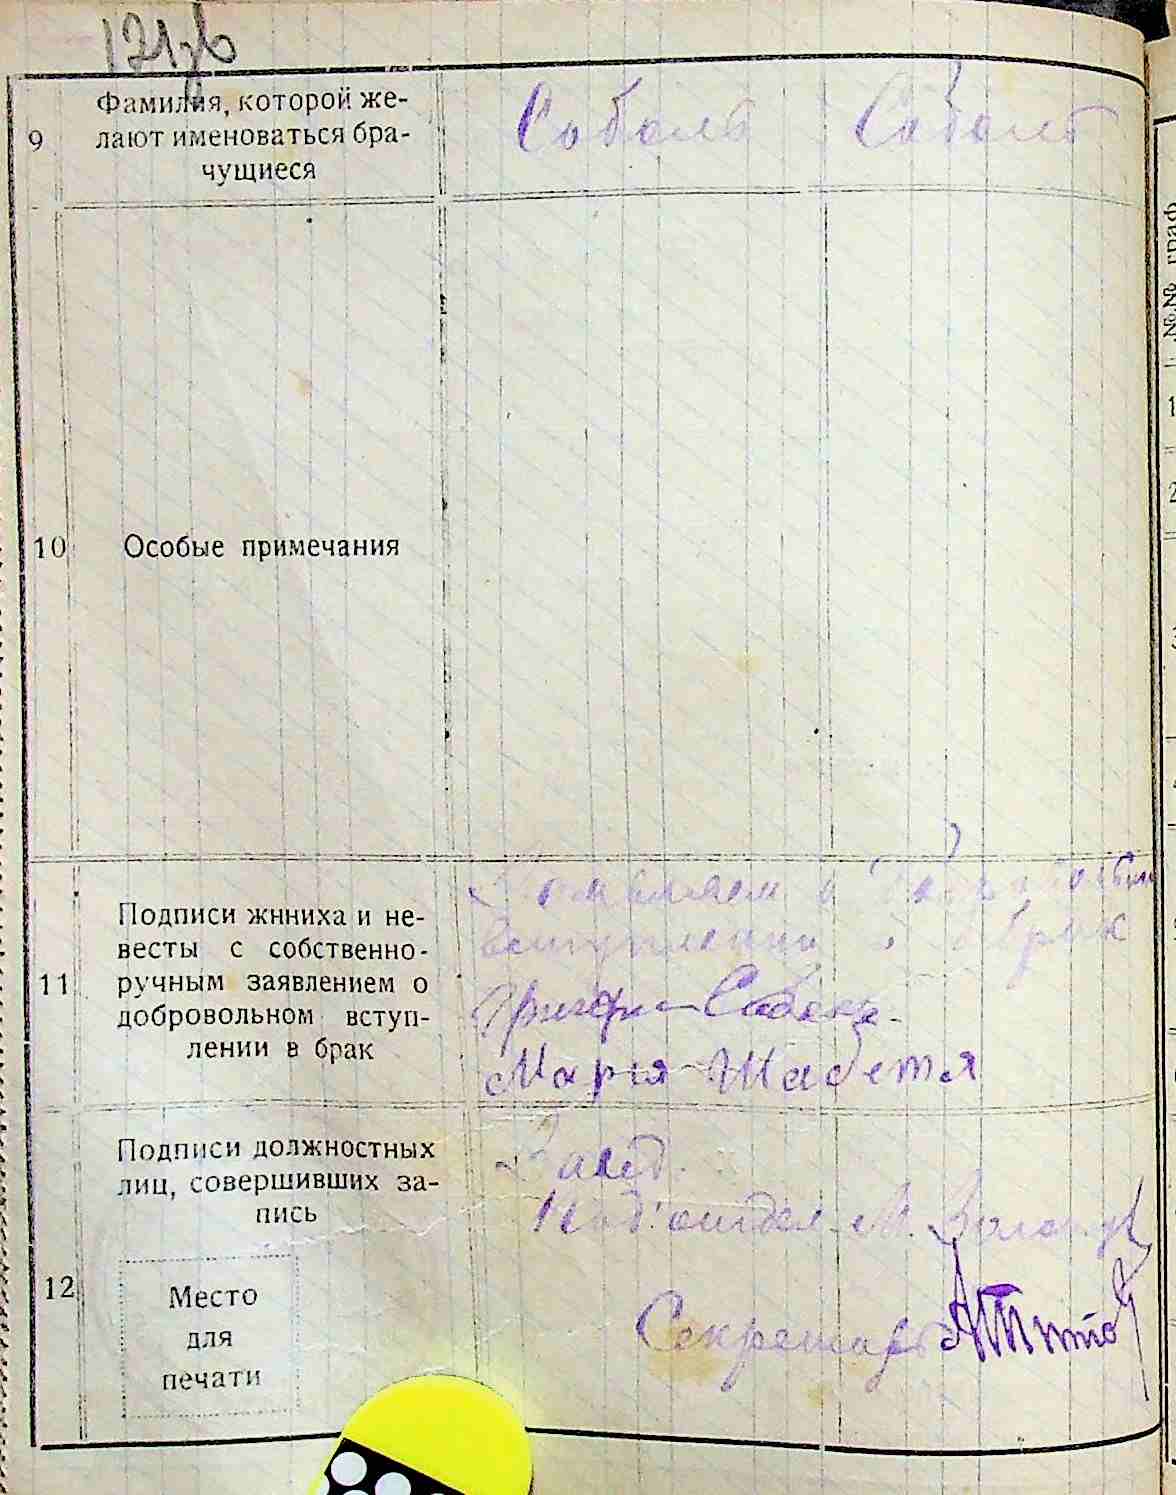 9 Фамилия, которой же-
лают именоваться бра-
чущиеся
Соболь Соболь
10 Особые примечания
11 Подписи жнниха и не-
весты с собственно-
ручным заявлением о
добровольном вступ-
лении в брак
о добровольном
вступлении в брак
Соболь
Мария Шабетя
12 Подписи должностных
лиц, совершивших за-
пись
Место
для
печати
М.
Секретарь
№№ граф
1
2